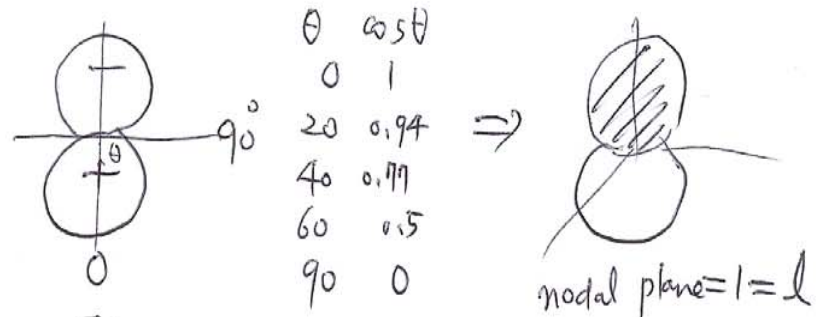 θ cosθ
0 1
20 0.94
40 0.77
60 0.5
90 0
⇒
90°
θ
0
nodal plane=1=l